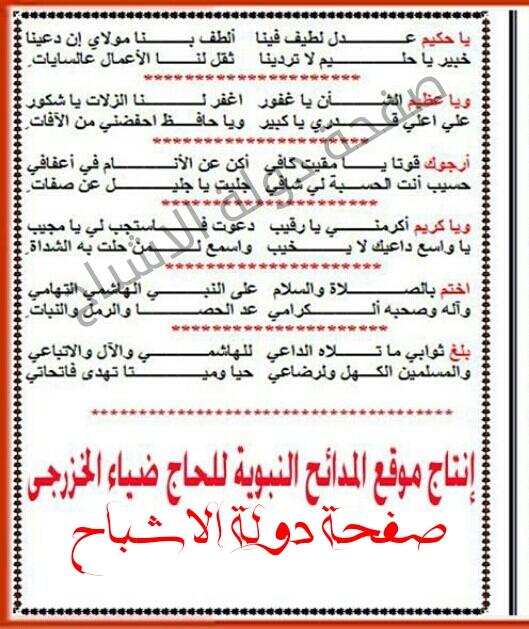 يا حكيم عدل لطيف فينا الطف بنا مولاي إن دعينا
خبير يا حليم لا تردينا ثقل لنا الأعمال عالسايات.
********************
ويا عظيم الشأن يا غفور اغفر لنا الزلات يا شكور
علي اعلي قدري يا كبير ويا حافظ احفضني من الآفات.
********************
أرجوك قوتا يا مقيت كافي أكن عن الأنام في أعفافي
حسيب أنت الحسبة لي شافي جليت يا جليل عن صفات.
********************
ويا كريم أكرمني يا رقيب دعوت فاستجب لي يا مجيب
يا واسع داعيك لا يخيب واسمع لمن حلت به الشداة.
********************
اختم بالصلاة والسلام على النبي الهاشمي التهامي
وآله وصحبه الكرامي عد الحصا والرمل والنبات.
********************
بلغ ثوابي ما تلاه الداعي للهاشمي والآل والاتباعي
والمسلمين الكهل ولرضاعي حيا وميتا تهدى فاتحاتي
********************
إنتاج موقع المدائح النبوية للحاج ضياء الخزرجى
صفحة دولة الاشباح
صفحة دولة الاشباح